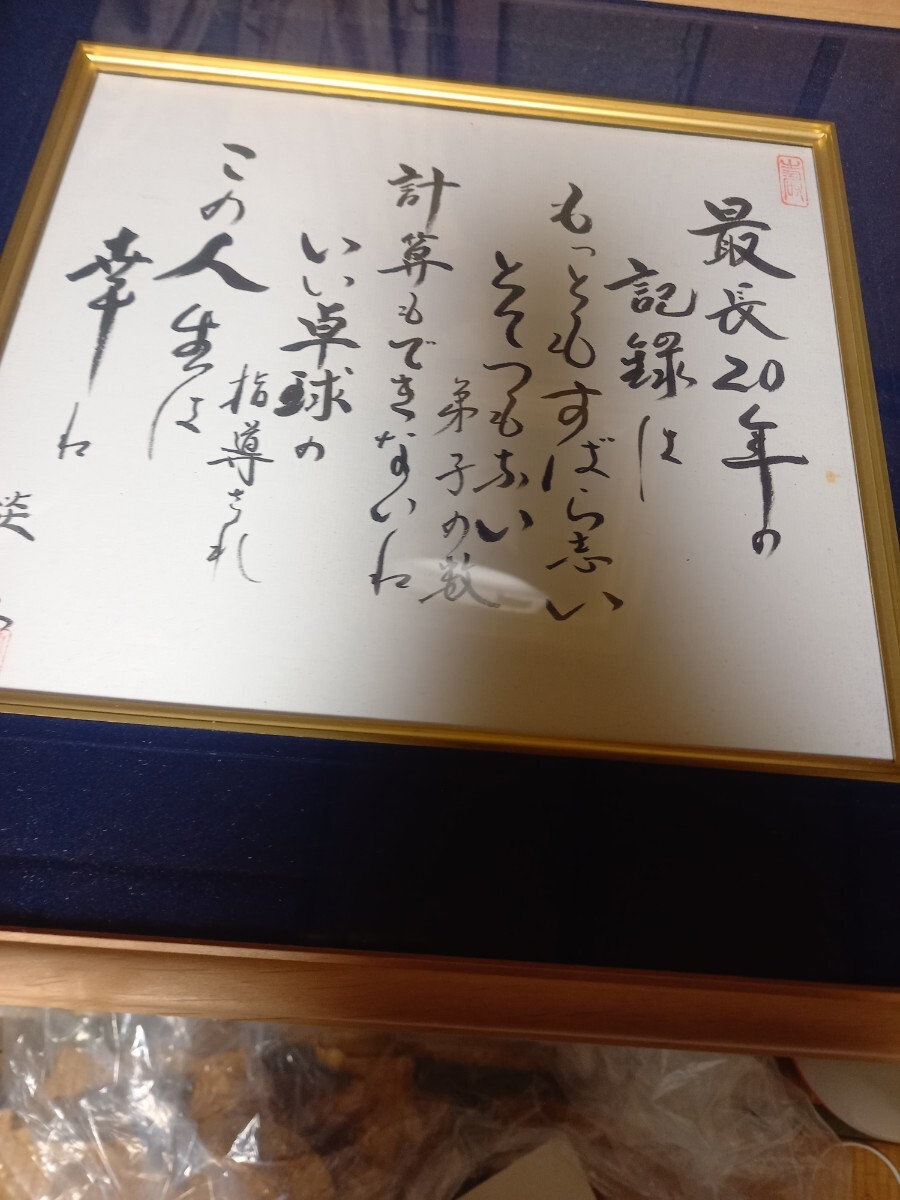 最長20年の
記録は
もっともすばら志い
とてつもない
弟子の数
計算もできないね
いい卓球の
指導され
この人生は
幸ね